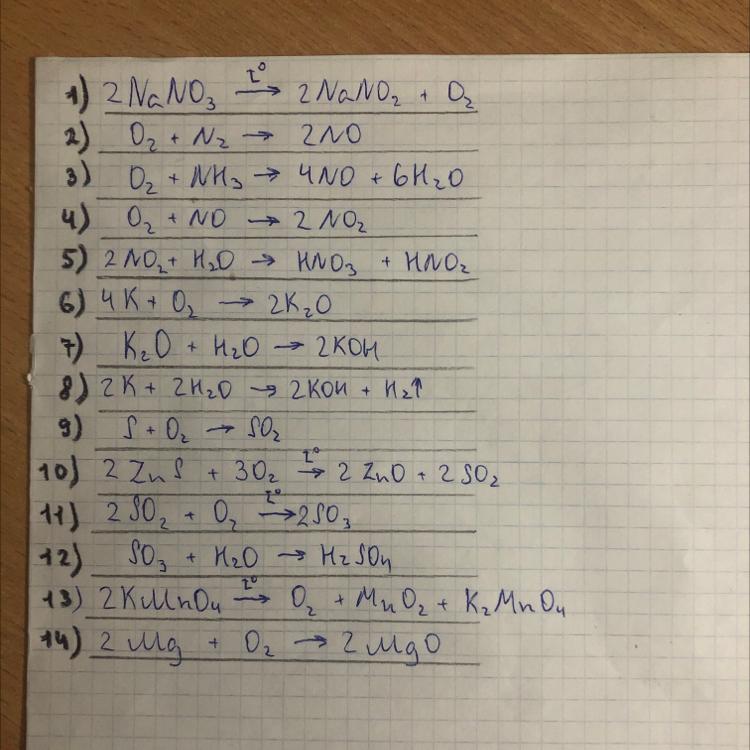 1) 2NaNO₃ →t° 2NaNO₂ + O₂
2) O₂ + N₂ → 2NO
3) O₂ + NH₃ → 4NO + 6H₂O
4) O₂ + NO → 2NO₂
5) 2NO₂ + H₂O → HNO₃ + HNO₂
6) 4K + O₂ → 2K₂O
7) K₂O + H₂O → 2KOH
8) 2K + 2H₂O → 2KOH + H₂↑
9) S + O₂ → SO₂
10) 2ZnS + 3O₂ →t° 2ZnO + 2SO₂
11) 2SO₂ + O₂ →t° 2SO₃
12) SO₃ + H₂O → H₂SO₄
13) 2KMnO₄ →t° O₂ + MnO₂ + K₂MnO₄
14) 2Mg + O₂ → 2MgO